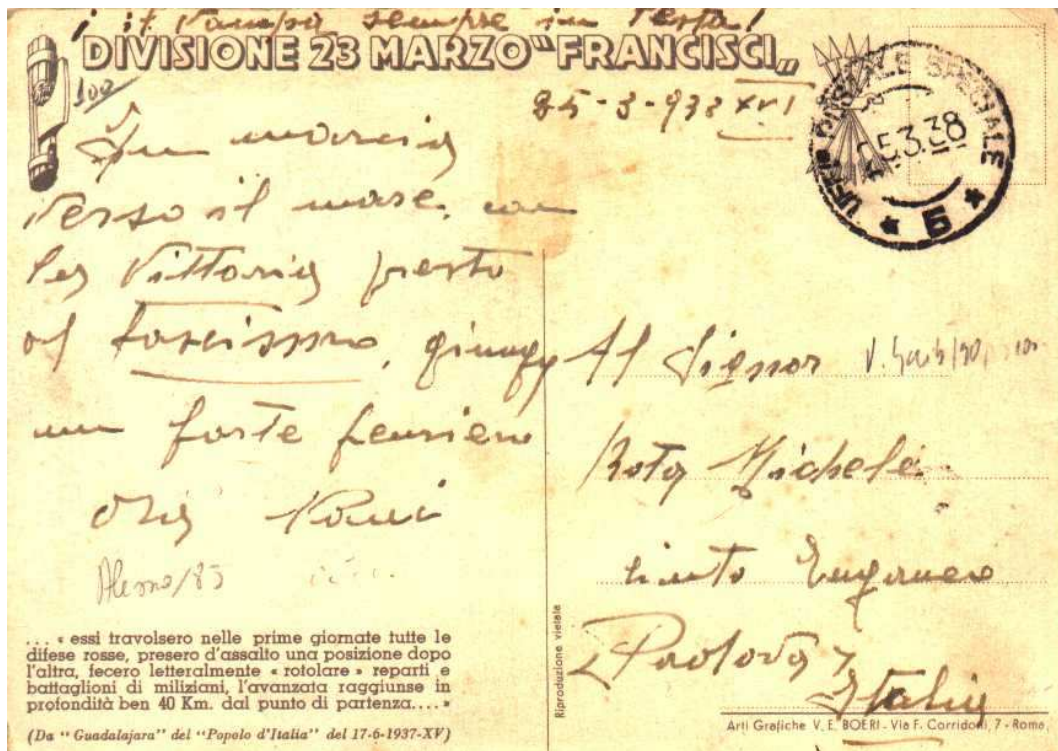 sempre in testa!
DIVISIONE 23 MARZO "FRANCISCI„
100
25-3-938 XVI
UFFICIO POSTALE SPECIALE
5.3.38
* 5 *
In marcia
verso il mare, con
la Vittoria
al fascismo,
un forte pensiero
Al Signor
Rota Michele
Cinto Euganeo
Padova
Italia
... « essi travolsero nelle prime giornate tutte le
difese rosse, presero d'assalto una posizione dopo
l'altra, fecero letteralmente « rotolare » reparti e
battaglioni di miliziani, l'avanzata raggiunse in
profondità ben 40 Km. dal punto di partenza.... »
(Da "Guadalajara" del "Popolo d'Italia" del 17-6-1937-XV)
Riproduzione vietata
Arti Grafiche V. E. BOERI - Via F. Corridoni, 7 - Roma